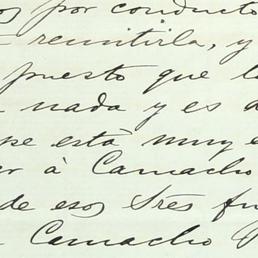 os por conducto
remitirla, y
puesto que la
nada y es d
se está muy e
er à Camacho
de esos tres fu
Camacho